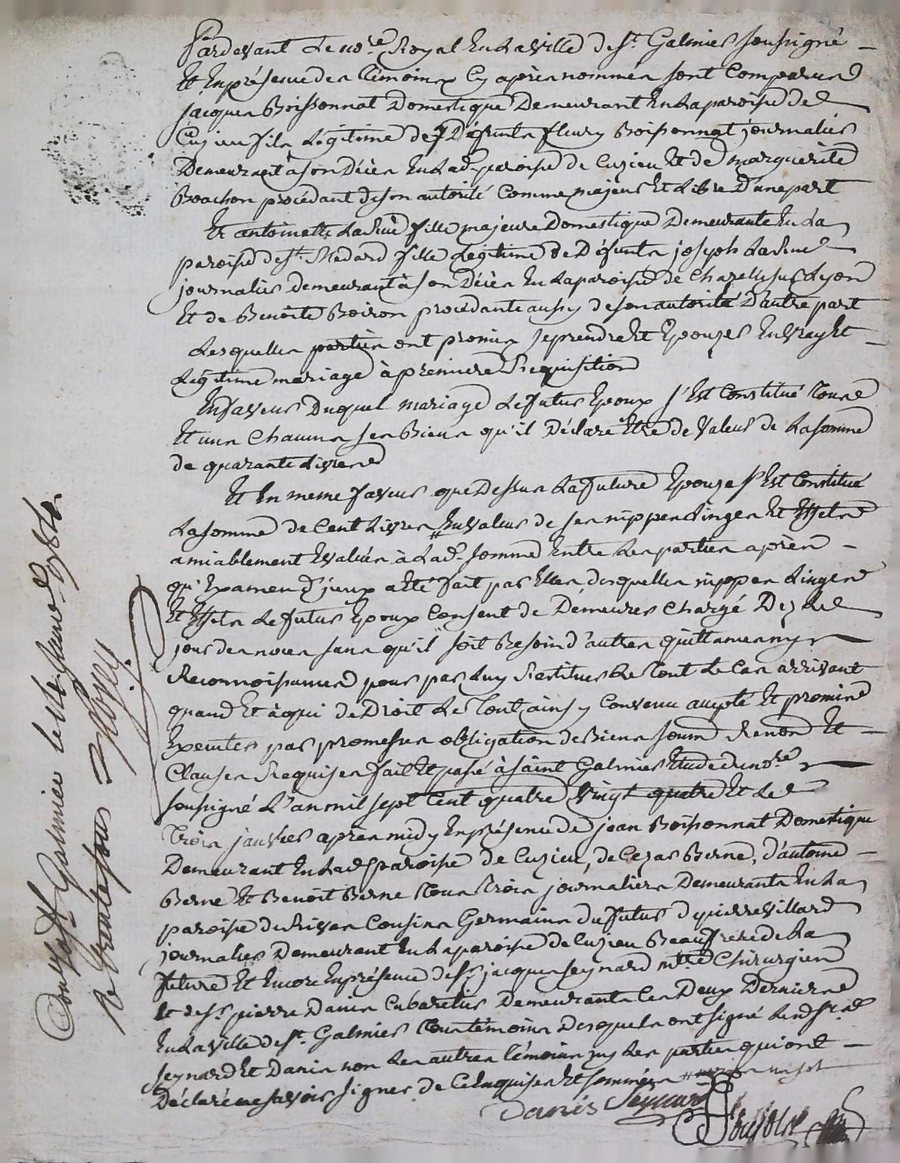 Pardevant Le no.re Royal En La Ville de St. Galmier soussigné
Et En présence des témoins Cy après nommés sont Comparus
jacques Boissonnat Domestique Demeurant En La paroisse de
Cuzieu fils Légitime de Défunt fleury Boissonnat journalier
Demeurant à son Décès En Lad. paroisse de Cuzieu Et de marguerite
Bouchon procédant de son autorité Comme majeur Et Libre D'une part
Et antoinette fille majeure Domestique Demeurante En La
paroisse de St. Médard fille Légitime de Défunt joseph
journalier demeurant à son Décès En La paroisse de Chazelle sur Lyon
Et de Benoite Boiron procédante aussy de son autorité D'autre part
Lesquelles parties ont promis se prendre Et Epouser En vray Et
Légitime mariage à première Réquisition
En faveur Duquel mariage Le futur Epoux s'Est Constitué Tous
Et uns Chacuns ses Biens qu'il Déclare Etre de Valeur de La somme
de quarante Livres
Et En meme faveur que Dessus La future Epouse s'Est Constitué
La somme de Cent Livres En valeur de ses nippes Linges Et Effets
amiablement Evalués à Lad. somme Entre Les parties après
qu'Examen D'iceux a Eté fait par Elles desquelles nippes Linges
Et Effets Le futur Epoux Consent de Demeurer Chargé Dez Le
jour des noces sans qu'il soit Besoin d'autres quittances ny
Reconnoissances pour par Luy Restituer Le Tout Le Cas arrivant
quand Et à qui de Droit Le Tout ainsy Convenu accepté Et promis
Executer par promesses obligation de Biens soum. Renon. Et
Clauses Requises fait Et passé à saint Galmier Etude du no.re
soussigné L'an mil sept Cent quatre vingt quatre Et Le
Trois janvier après midy En présence de jean Boissonnat Domestique
Demeurant En Lad. paroisse de Cuzieu, de Cezar Berne, d'antoine
Berne Et Benoit Berne Tous Trois journaliers Demeurants En La
paroisse de Rivas Cousins Germains du futur d pierre Villard
journalier Demeurant En La paroisse de Cuzieu Beau frere de La
future Et Encore En présence de Sr. jacques Seynard m.tre Chirurgien
Et de Sr. pierre Danis Cabaretier Demeurants Ces Deux Derniers
En La Ville de St. Galmier Tous témoins Desquels ont signé Lesd. Srs.
Seynard Et Danis non Les autres témoins ny Les parties qui ont
Déclaré ne savoir signer de Ce Enquises Et sommées
Danis Seynard
Conllé à St Galmier le janv. 1784